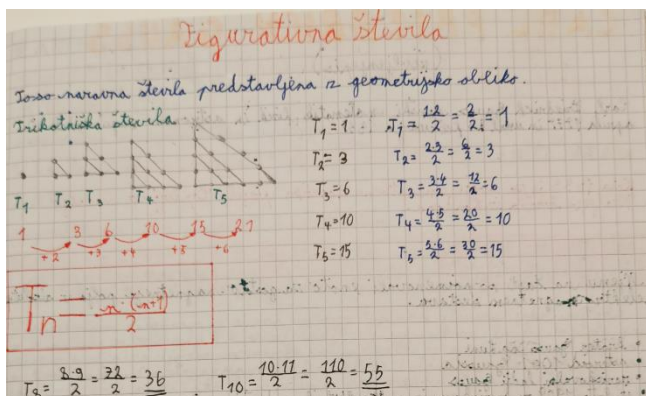 Figurativna števila
To so naravna števila predstavljena z geometrijsko obliko.
Trikotniška števila
T₁ T₂ T₃ T₄ T₅
1 3 6 10 15 21
+2 +3 +4 +5 +6
Tₙ = n(n+1)/2
T₁ = 1 T₁ = 1·2/2 = 2/2 = 1
T₂ = 3 T₂ = 2·3/2 = 6/2 = 3
T₃ = 6 T₃ = 3·4/2 = 12/2 = 6
T₄ = 10 T₄ = 4·5/2 = 20/2 = 10
T₅ = 15 T₅ = 5·6/2 = 30/2 = 15
T₈ = 8·9/2 = 72/2 = 36 T₁₀ = 10·11/2 = 110/2 = 55